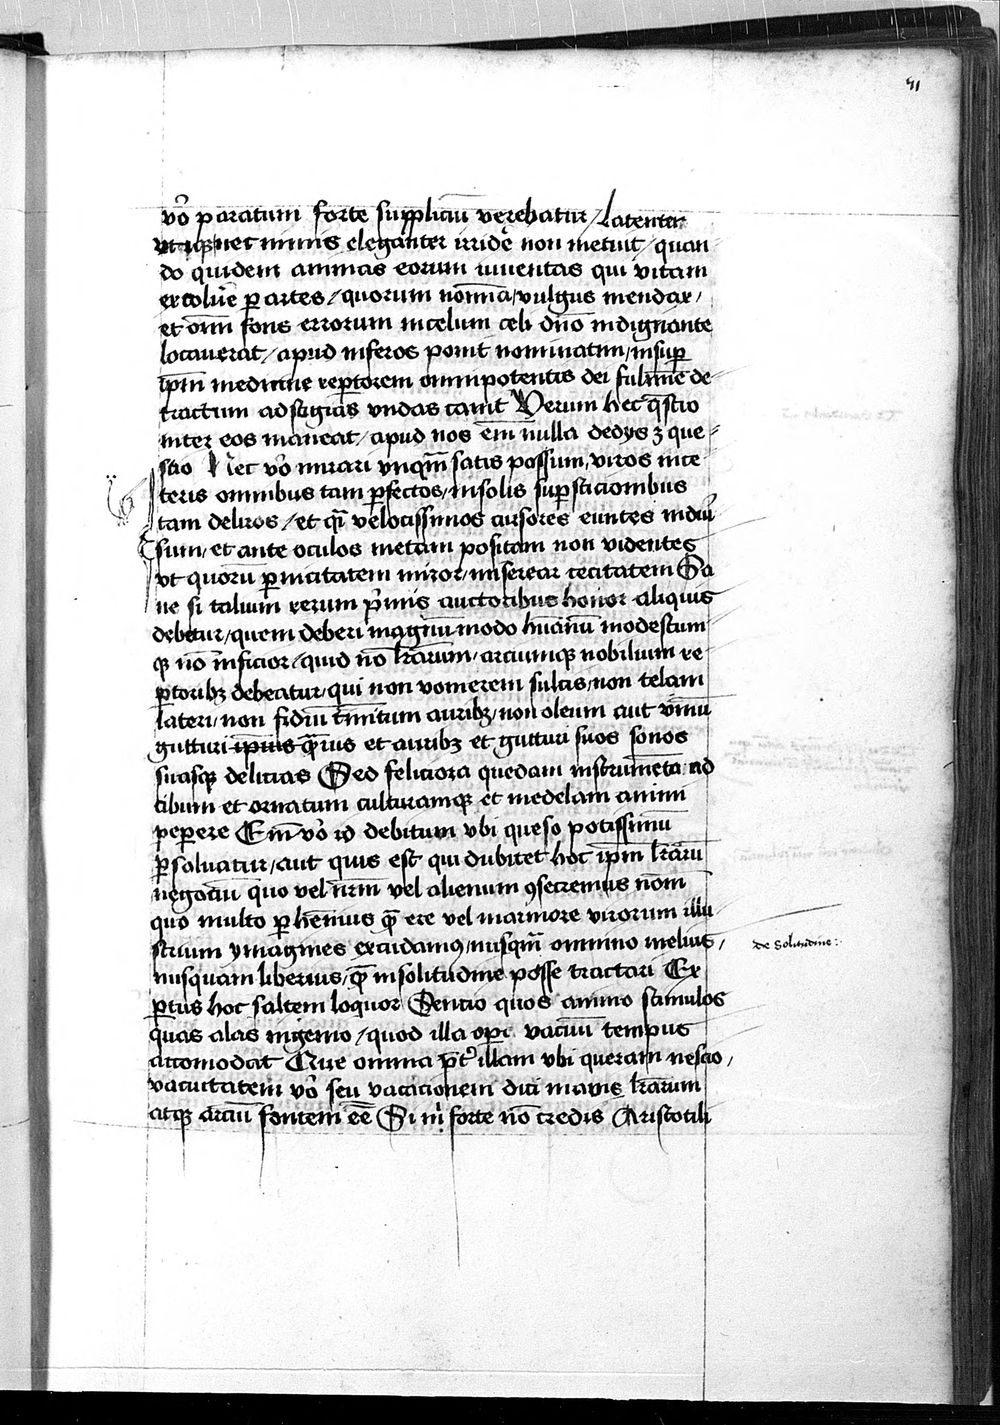 71
vo᷎ paratum forte suppliciū verebatur / Latenter
vt ipse nec minus eleganter irride᷎ non metuit / quan
do quidem animas eorum iuuentas qui vitam
excolue᷎ ꝑ artes / quorum nomīa / vulgus mendax /
et om̄ fons errorum in celum celi dn̄o indignante
locauerat / apud inferos ponit nominatim / insuꝑ
ip̄m medicine reꝑtorem omnipotentis dei fulmīe de
tractum ad stigias vndas canit Verum hec q̄stio
inter eos maneat / apud nos em̄ nulla de dijs ꝫ que
stio Nec vo᷎ mirari vnqm̄ satis possum / viros in ce
teris omnibus tam ꝑfectos / in solis suꝑsticionibus
tam deliros / et qͣi velocissimos cursores euntes in diu᷎
sum / et ante oculos metam positam non videntes
vt quorū ꝑnicitatem miror / miserear cecitatem Sa
ne si talium rerum p᷎mis auctoribus honor aliquis
debetur / quem deberi magnū modo hūanū modestum
qꝫ nō inficior / quid nō lr̄arum / arciumqꝫ nobilium re
ꝑtoribꝫ debeatur / qui non vomerem sulcis / non telam
lateri / non fidiū tīnitum auribꝫ / non oleum aut vinū
gutturi ip̄ius q̄uis et auribꝫ et gutturi suos sonos
suasqꝫ delicias Sed feliciora quedam instrumēta ad
cibum et ornatum culturamqꝫ et medelam animi
peꝑere Em̄ vo᷎ id debitum vbi queso potissimū
ꝑsoluatur / aut quis est qui dubitet hoc ip̄m lr̄arū
negociū quo vel nr̄m vel alienum ꝯsecremus nom̄
quo multo ꝑhēnius q̄ ere vel marmore virorum illu
strium ymagines excudamꝯ / nusqm̄ omnino melius /
nusquam liberius / q̄ in solitudine posse tractari Ex
ꝑtus hoc saltem loquor Sentio quos animo stimulos
quas alas ingenio / quod illa oꝑi vacuū tempus
accomodat Que omnia p̄t᷎ illam vbi queram nescio /
vacuitatem vo᷎ seu vacacionem dici mauis lr̄arum
atqꝫ arciū fontem eē Si m͛ forte nō credis Aristotili
de Solitudine: